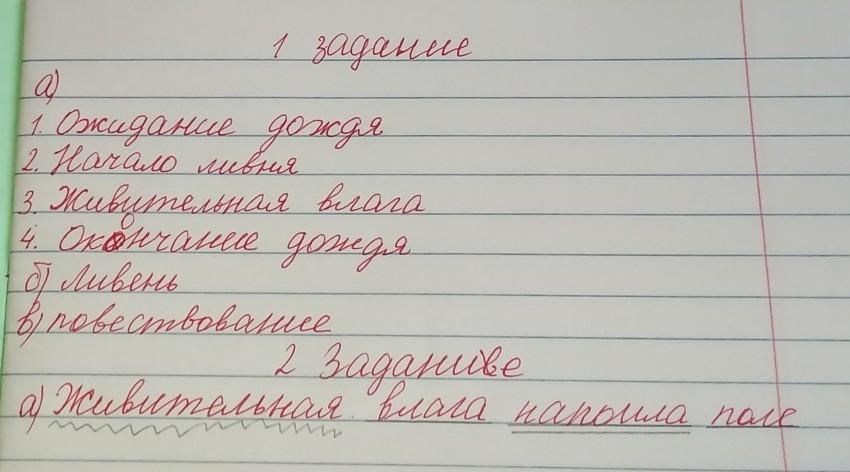 1 задание
а)
1. Ожидание дождя
2. Начало ливня
3. Живительная влага
4. Окончание дождя
б) ливень
в) повествование
2 Задание
а) Живительная влага напоила поле